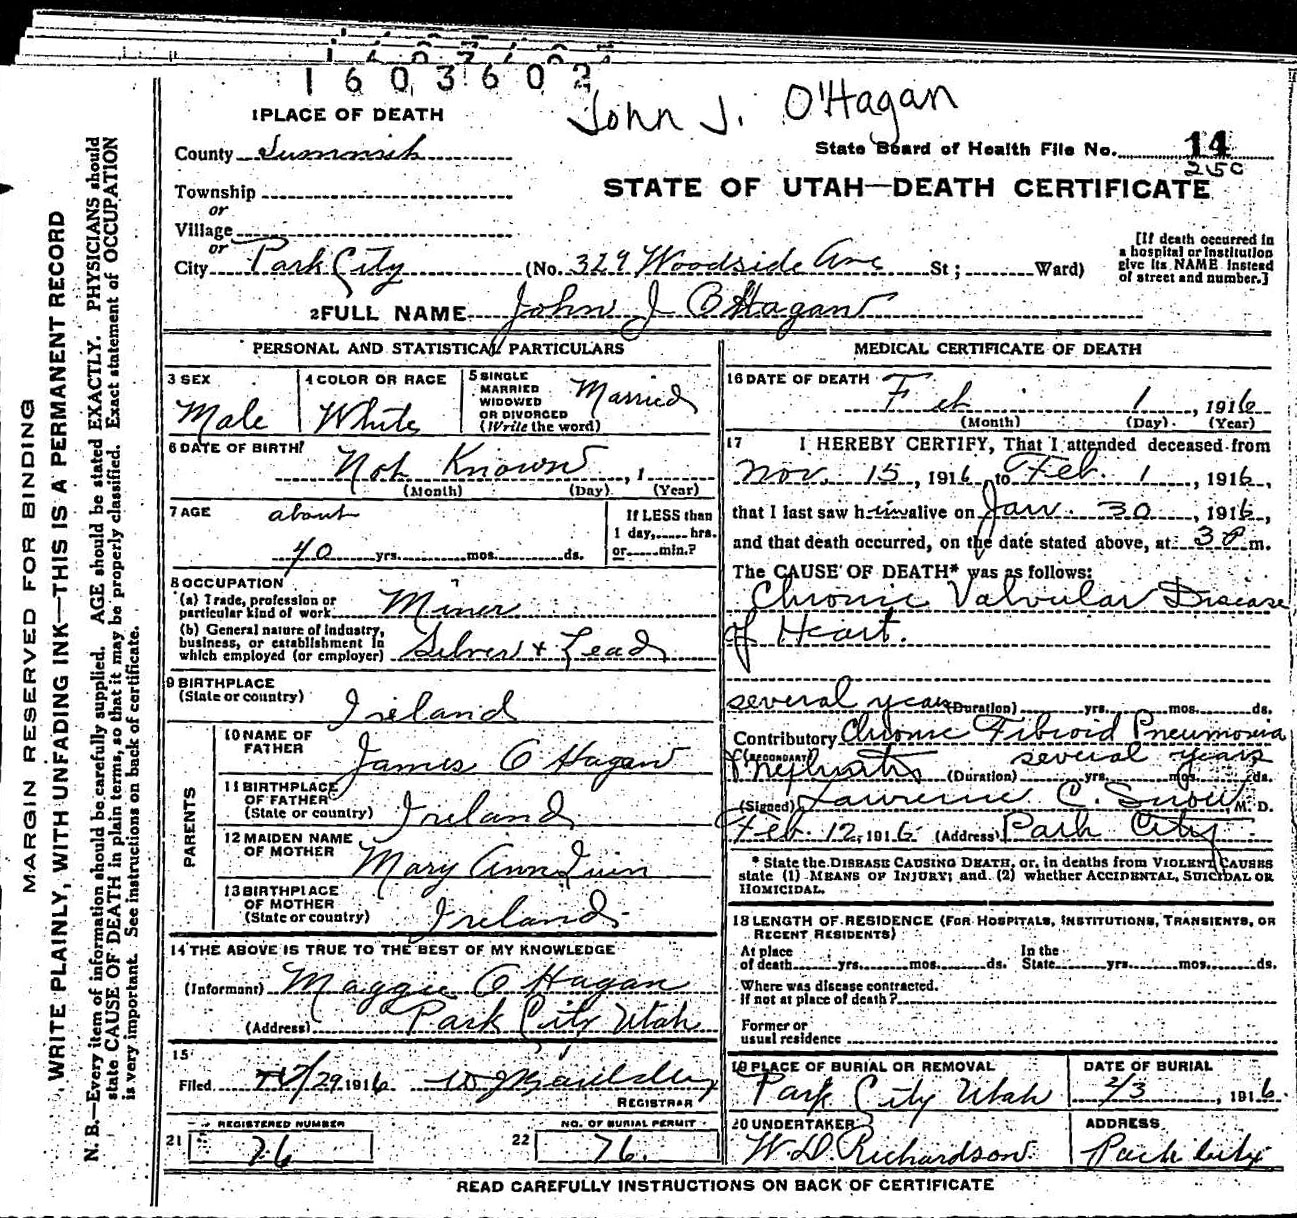 1603602
John J. O'Hagan
1 PLACE OF DEATH
State Board of Health File No. 14
County Summit
Township
or
Village
or
STATE OF UTAH—DEATH CERTIFICATE
City Park City (No. 329 Woodside Ave St; Ward)
[If death occurred in
a hospital or institution
give its NAME instead
of street and number.]
2 FULL NAME John J O'Hagan
PERSONAL AND STATISTICAL PARTICULARS
3 SEX
Male
4 COLOR OR RACE
White
5 SINGLE
MARRIED
WIDOWED
OR DIVORCED
(Write the word)
Married
6 DATE OF BIRTH
Not Known, 1
(Month) (Day) (Year)
7 AGE about
40 yrs. mos. ds.
If LESS than
1 day, hrs.
or min.?
8 OCCUPATION
(a) Trade, profession or
particular kind of work Miner
(b) General nature of industry,
business, or establishment in
which employed (or employer) Silver & Lead
9 BIRTHPLACE
(State or country) Ireland
PARENTS
10 NAME OF
FATHER James O Hagan
11 BIRTHPLACE
OF FATHER
(State or country) Ireland
12 MAIDEN NAME
OF MOTHER Mary Ann Quin
13 BIRTHPLACE
OF MOTHER
(State or country) Ireland
14 THE ABOVE IS TRUE TO THE BEST OF MY KNOWLEDGE
(Informant) Maggie O Hagan
(Address) Park City Utah
15
Filed 29, 1916
REGISTRAR
REGISTERED NUMBER
21 76
NO. OF BURIAL PERMIT
22 76.
MEDICAL CERTIFICATE OF DEATH
16 DATE OF DEATH
Feb 1, 1916
(Month) (Day) (Year)
17 I HEREBY CERTIFY, That I attended deceased from
Nov. 15, 1916, to Feb. 1, 1916,
that I last saw him alive on Jan. 30, 1916,
and that death occurred, on the date stated above, at 3 P m.
The CAUSE OF DEATH* was as follows:
Chronic Valvular Disease
of Heart.
several years (Duration) yrs. mos. ds.
Contributory Chronic Fibroid Pneumonia
(SECONDARY)
& Nephritis (Duration) several years yrs. mos. ds.
(Signed) Lawrence C. Snow M. D.
Feb. 12, 1916 (Address) Park City
* State the DISEASE CAUSING DEATH, or, in deaths from VIOLENT CAUSES
state (1) MEANS OF INJURY; and (2) whether ACCIDENTAL, SUICIDAL OR
HOMICIDAL.
18 LENGTH OF RESIDENCE (FOR HOSPITALS, INSTITUTIONS, TRANSIENTS, OR
RECENT RESIDENTS)
At place
of death yrs. mos. ds.
In the
State yrs. mos. ds.
Where was disease contracted.
if not at place of death?
Former or
usual residence
19 PLACE OF BURIAL OR REMOVAL
Park City Utah
DATE OF BURIAL
2/3, 1916.
20 UNDERTAKER
W. D. Richardson.
ADDRESS
Park City
READ CAREFULLY INSTRUCTIONS ON BACK OF CERTIFICATE
MARGIN RESERVED FOR BINDING
WRITE PLAINLY, WITH UNFADING INK—THIS IS A PERMANENT RECORD
N. B.—Every item of information should be carefully supplied. AGE should be stated EXACTLY. PHYSICIANS should
state CAUSE OF DEATH in plain terms, so that it may be properly classified. Exact statement of OCCUPATION
is very important. See instructions on back of certificate.